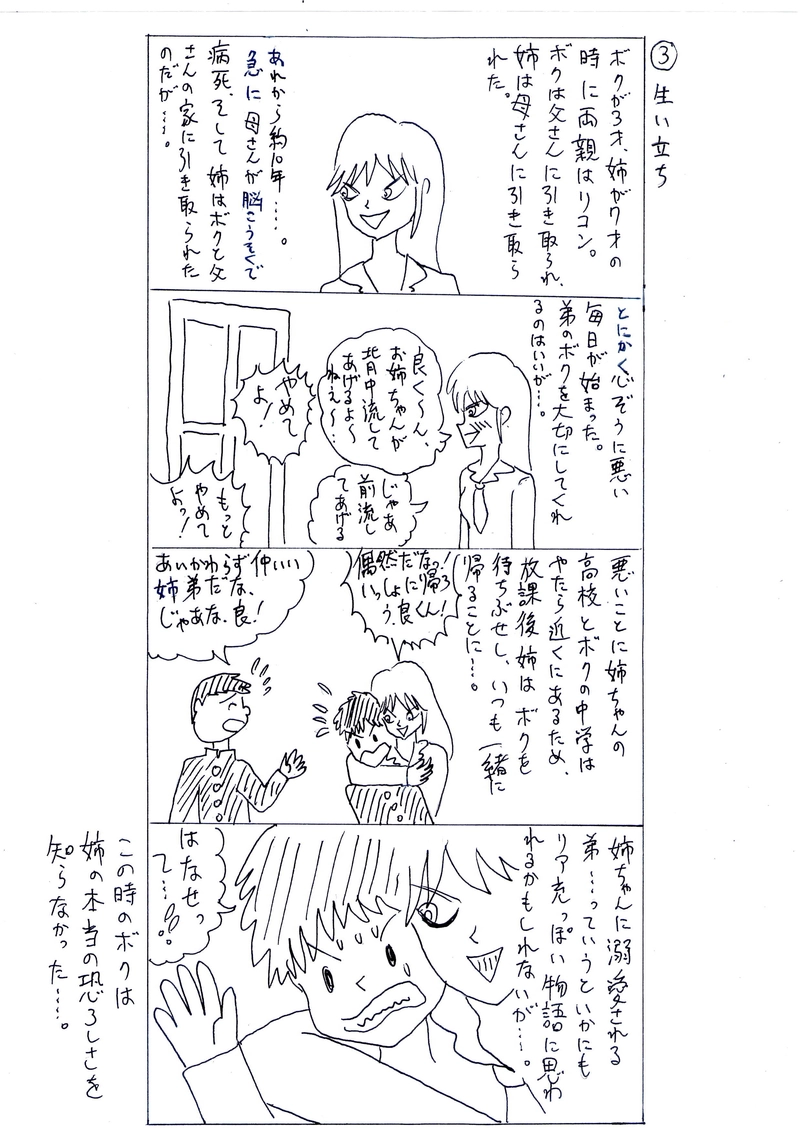 ③ 生い立ち
ボクが3才、姉が7才の
時に両親はリコン。
ボクは父さんに引き取られ、
姉は母さんに引き取ら
れた。
あれから約10年…。
急に母さんが脳こうそくで
病死、そして姉はボクと父
さんの家に引き取られた
のだが…。
とにかく心ぞうに悪い
毎日が始まった。
弟のボクを大切にしてくれ
るのはいいが…。
良く〜ん、
お姉ちゃんが
背中流して
あげるよ〜
ねぇ〜…
やめて
よ！
じゃあ
前流し
てあげる
もっと
やめて
よっ！
悪いことに姉ちゃんの
高校とボクの中学は
やたら近くにあるため、
放課後姉はボクを
待ちぶせし、いつも一緒に
帰ることに…。
偶然だなっ！
いっしょに帰ろ
う、良くん！
あいかわらず仲いい
姉弟だな、
じゃあな、良！
姉ちゃんに溺愛される
弟…っていうといかにも
リア充っぽい物語に思わ
れるかもしれないが…。
はなせっ
て…！！
この時のボクは
姉の本当の恐ろしさを
知らなかった…。